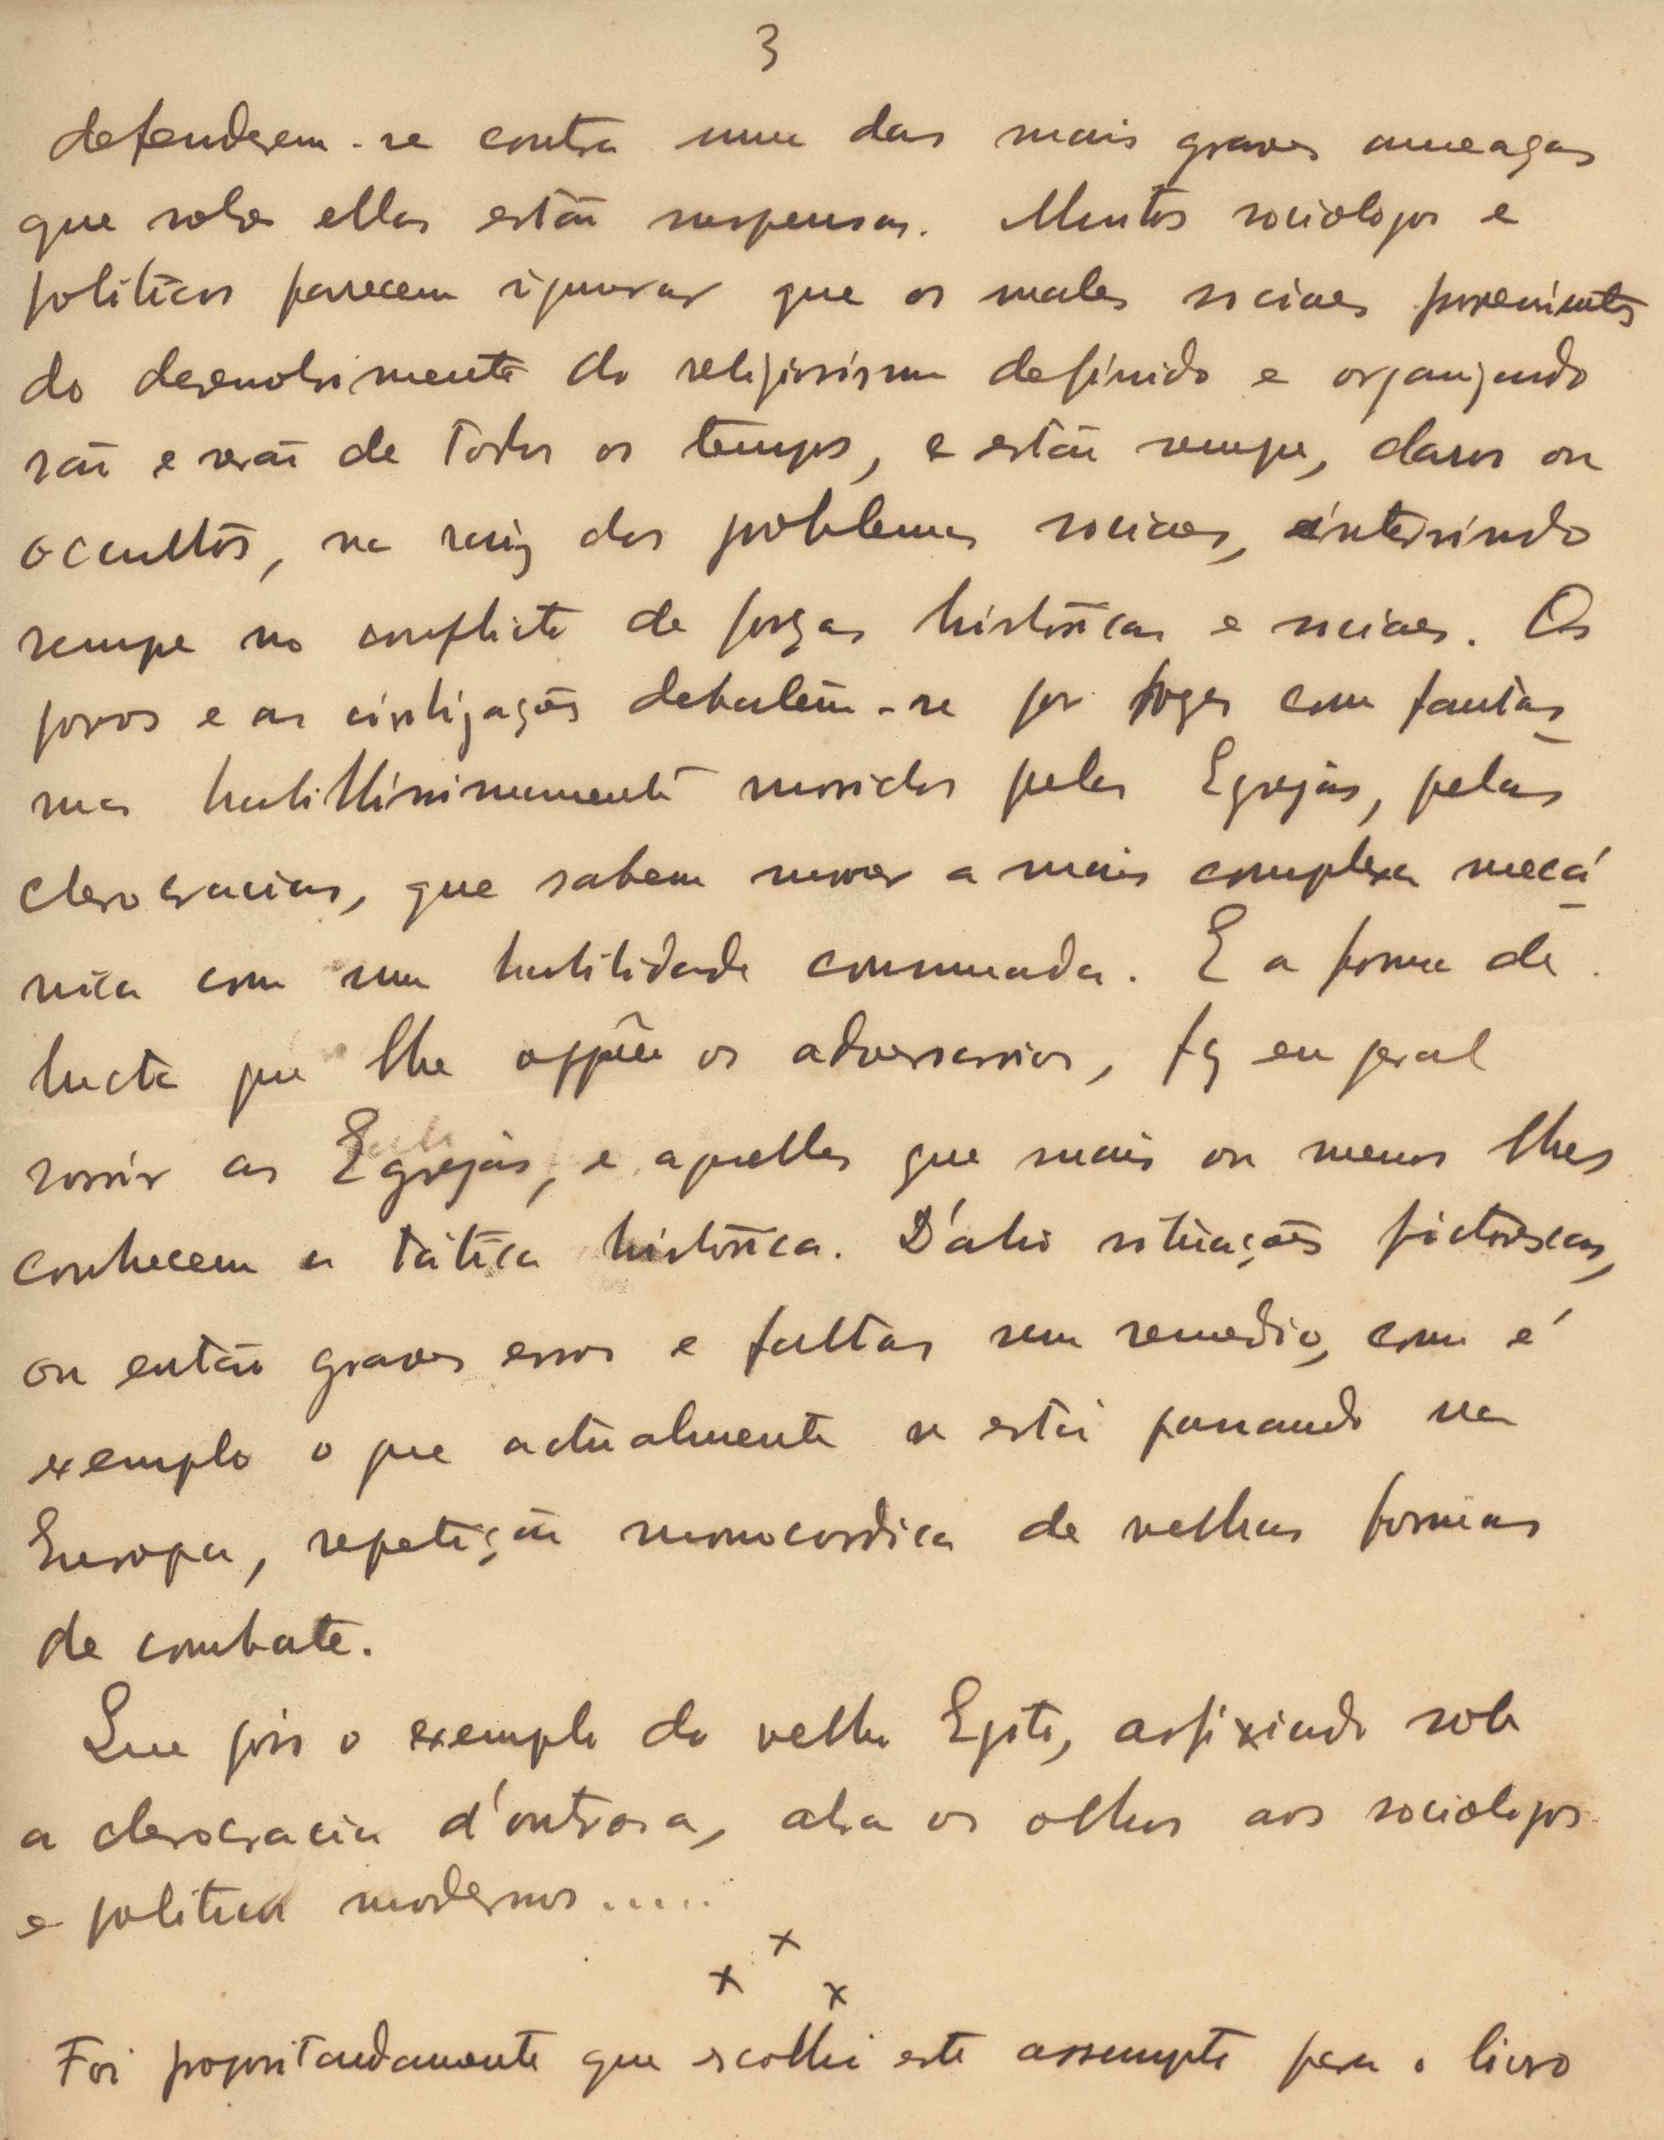 3
defenderem-se contra uma das mais graves ameaças
que sobre ellas estão suspensas. Muitos sociologos e
politicos parecem ignorar que os males sociaes provenientes
do desenvolvimento do religiosismo definido e organizado
são e serão de todos os tempos, e estão sempre, claros ou
occultos, na raiz dos problemas sociaes, intervindo
sempre no conflicto de forças historicas e sociaes. Os
povos e as civilizações debatem-se por vezes com fantas
mas habillissimamente movidos pelas Egrejas, pelas
clerocracias, que sabem mover a mais complexa mecá
nica com uma habilidade consumada. E a forma de
lucta que lhe oppõem os adversarios, faz em geral
sorrir as Egrejas, e aquelles que mais ou menos lhes
conhecem a tática histórica. D'ahi situações pictorescas,
ou então graves erros e faltas sem remedio, como é
exemplo o que actualmente se está passando na
Europa, repetição monocordica de velhas formas
de combate.
Que pois o exemplo do velho Egito, asfixiando sob
a clerocracia d'outrora, abra os olhos aos sociologos
e politicos modernos.....
x x x
Foi propositadamente que escolhi este assumpto para o livro